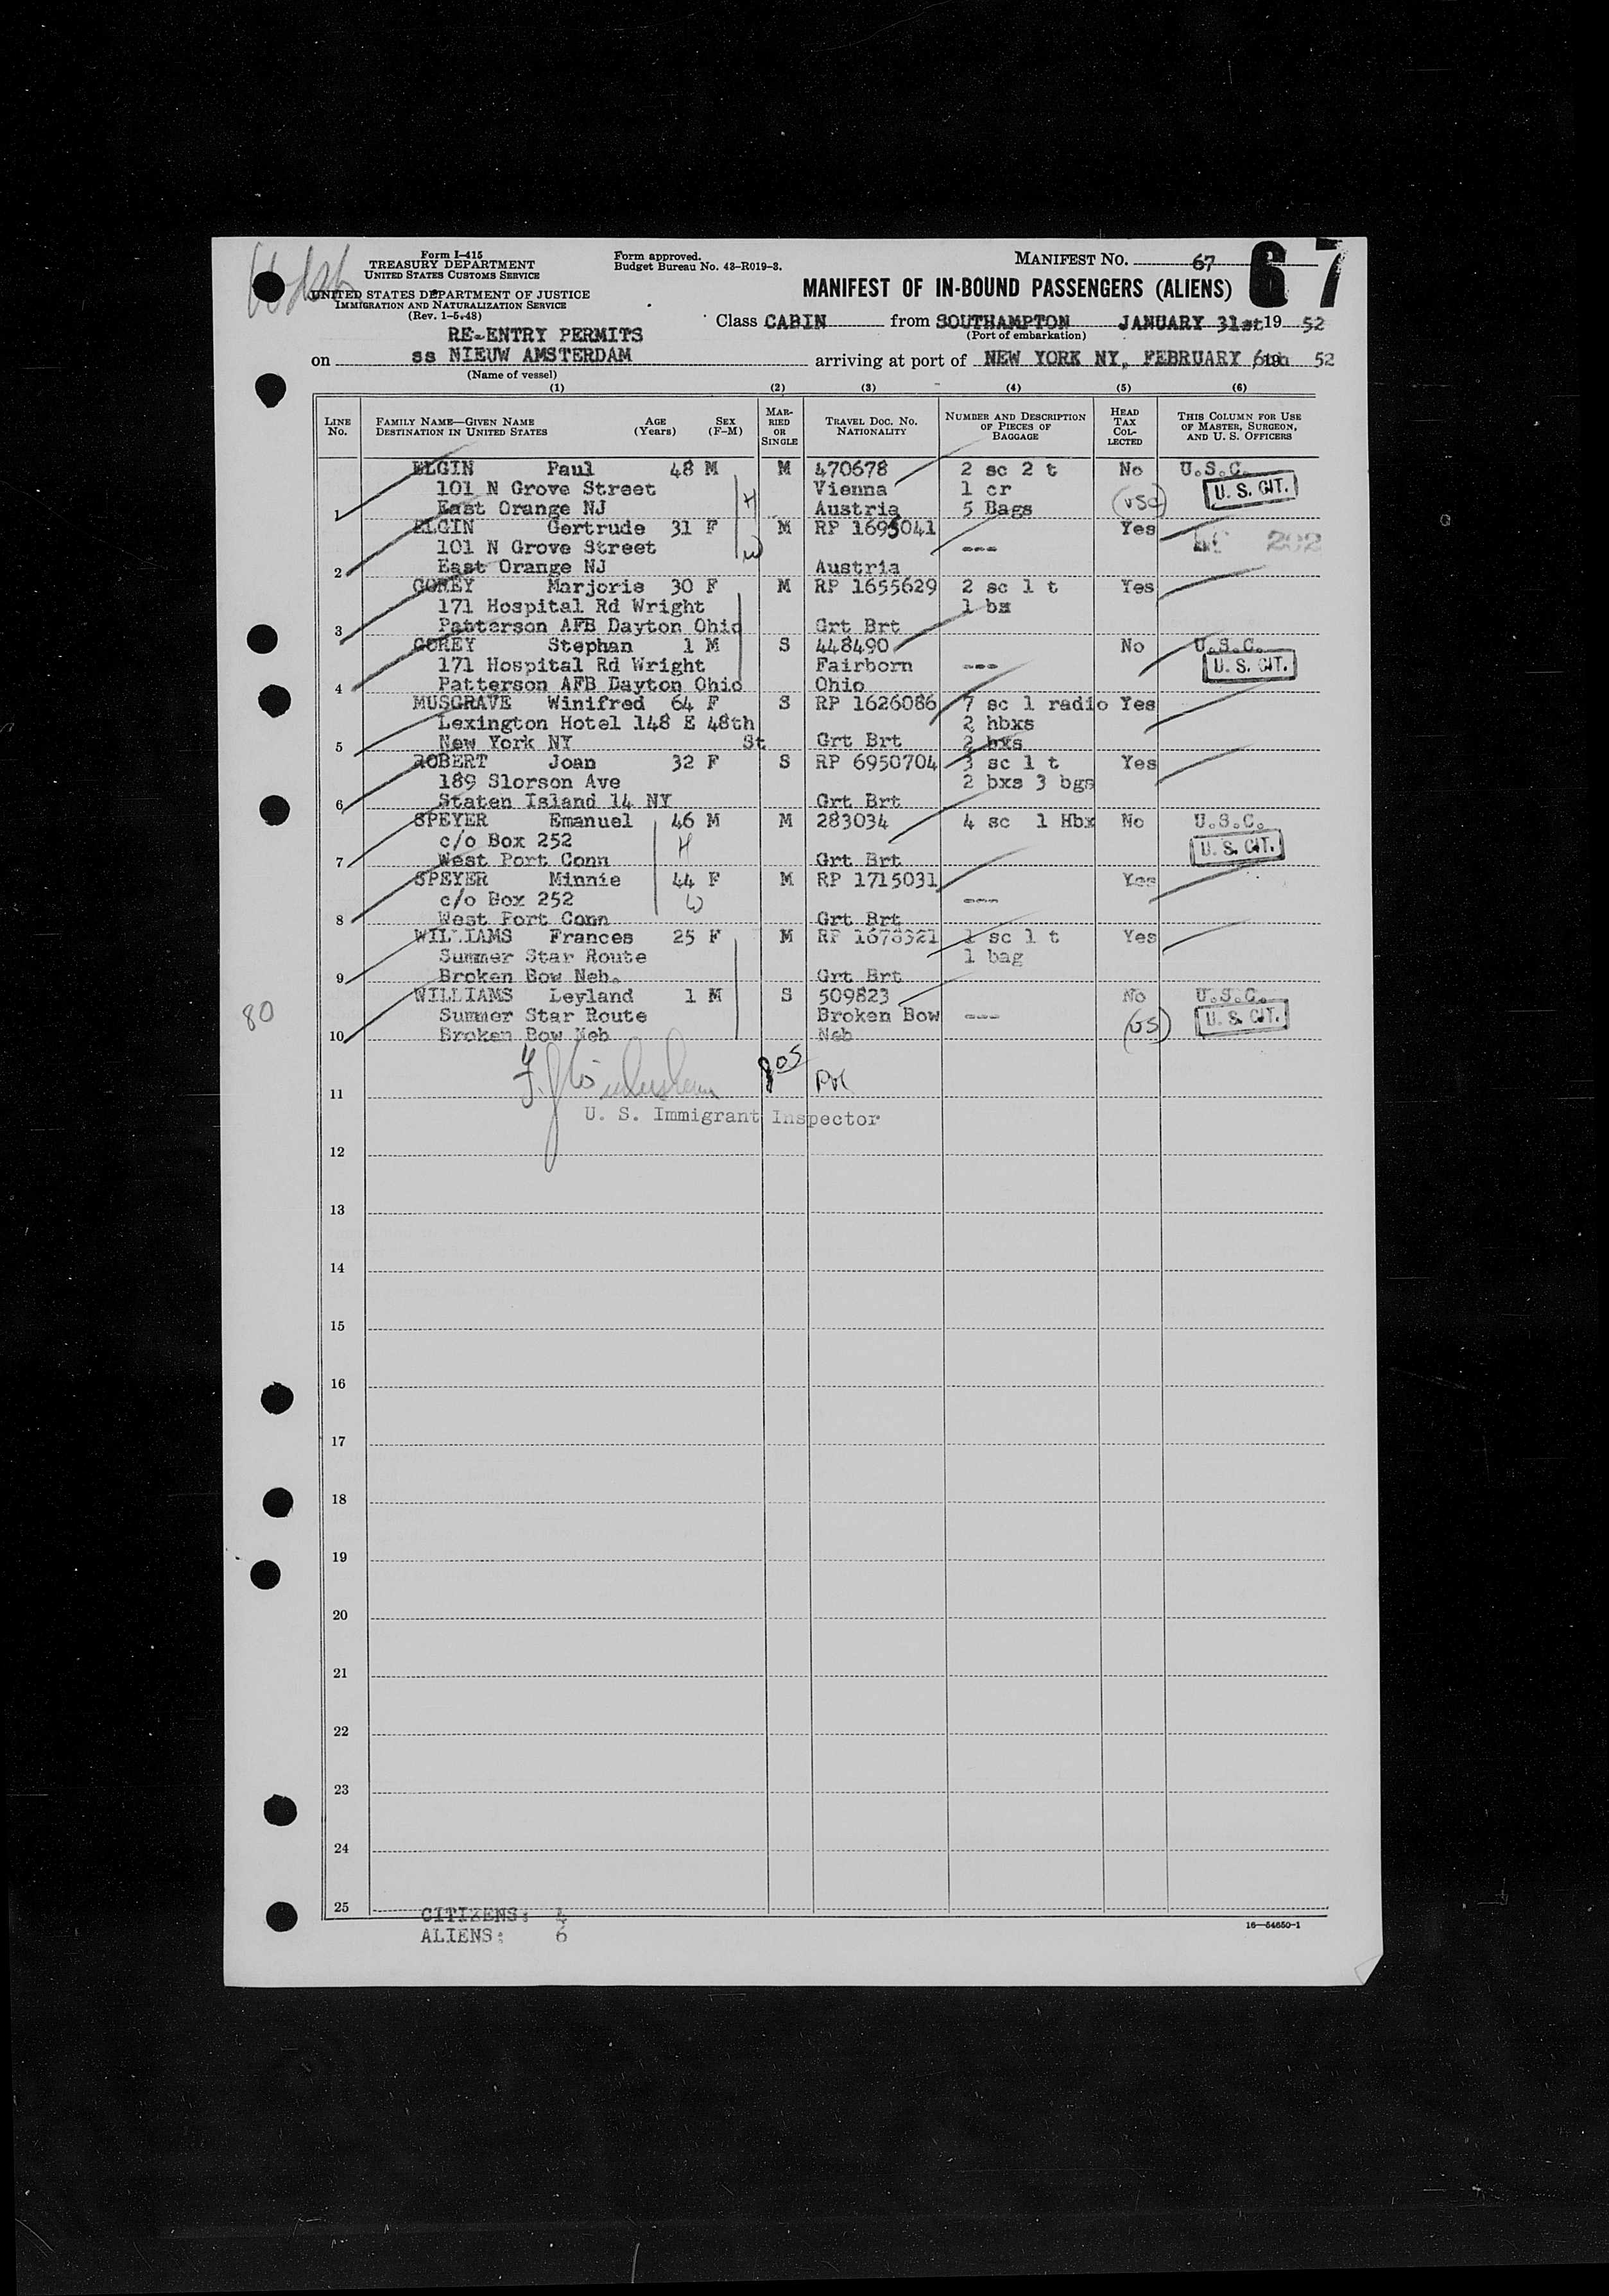 Form I-415
TREASURY DEPARTMENT
UNITED STATES CUSTOMS SERVICE
UNITED STATES DEPARTMENT OF JUSTICE
IMMIGRATION AND NATURALIZATION SERVICE
(Rev. 1-5-48)
Form approved.
Budget Bureau No. 43-R019-3.
MANIFEST NO. 67
67
MANIFEST OF IN-BOUND PASSENGERS (ALIENS)
Class CABIN from SOUTHAMPTON JANUARY 31st 19 52
(Port of embarkation)
RE-ENTRY PERMITS
on ss NIEUW AMSTERDAM arriving at port of NEW YORK NY, FEBRUARY 6th 19 52
(Name of vessel)
(1) (2) (3) (4) (5) (6)
LINE No. FAMILY NAME—GIVEN NAME DESTINATION IN UNITED STATES AGE (Years) SEX (F-M) MARRIED OR SINGLE TRAVEL DOC. NO. NATIONALITY NUMBER AND DESCRIPTION OF PIECES OF BAGGAGE HEAD TAX COLLECTED THIS COLUMN FOR USE OF MASTER, SURGEON, AND U. S. OFFICERS
ELGIN Paul 48 M M 470678 2 sc 2 t No U.S.C.
101 N Grove Street H Vienna 1 cr U. S. CIT.
1 East Orange NJ Austria 5 Bags (USC)
ELGIN Gertrude 31 F M RP 1695041 Yes
101 N Grove Street W --- 202
2 East Orange NJ Austria
GOREY Marjorie 30 F M RP 1655629 2 sc 1 t Yes
171 Hospital Rd Wright 1 bx
3 Patterson AFB Dayton Ohio Grt Brt
GOREY Stephan 1 M S 448490 No U.S.C.
171 Hospital Rd Wright Fairborn --- U. S. CIT.
4 Patterson AFB Dayton Ohio Ohio
MUSGRAVE Winifred 64 F S RP 1626086 7 sc 1 radio Yes
Lexington Hotel 148 E 48th 2 hbxs
5 New York NY St Grt Brt 2 bxs
ROBERT Joan 32 F S RP 6950704 3 sc 1 t Yes
189 Slorson Ave 2 bxs 3 bgs
6 Staten Island 14 NY Grt Brt
SPEYER Emanuel 46 M M 283034 4 sc 1 Hbx No U.S.C.
c/o Box 252 H U. S. CIT.
7 West Port Conn Grt Brt
SPEYER Minnie 44 F M RP 1715031 Yes
c/o Box 252 W ---
8 West Port Conn Grt Brt
WILLIAMS Frances 25 F M RP 1678321 1 sc 1 t Yes
Summer Star Route 1 bag
9 Broken Bow Neb. Grt Brt
WILLIAMS Leyland 1 M S 509823 No U.S.C.
80 Summer Star Route Broken Bow --- (US) U. S. CIT.
10 Broken Bow Neb Neb
805
11
U. S. Immigrant Inspector
12
13
14
15
16
17
18
19
20
21
22
23
24
25
CITIZENS: 4
ALIENS: 6
16—54650-1